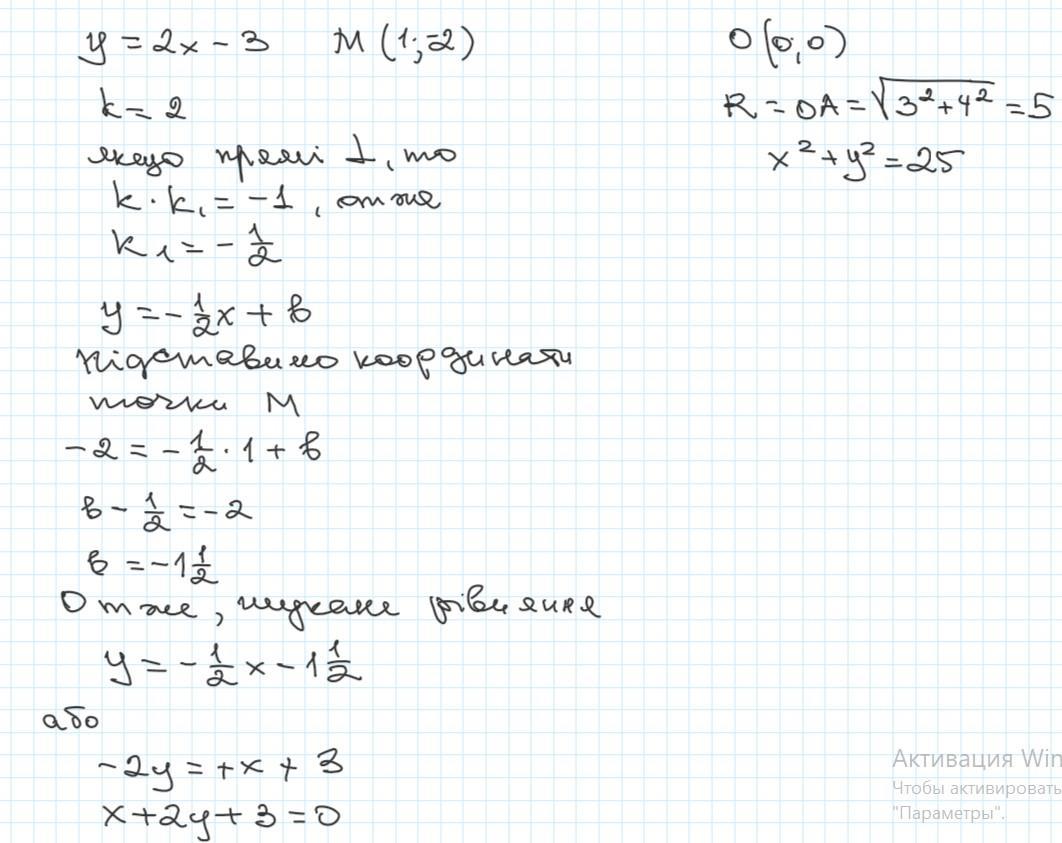 y = 2x - 3 M (1; -2)
k = 2
якщо прямі ⊥, то
k · k₁ = -1, отже
k₁ = - 1/2
y = - 1/2 x + b
Підставимо координати
точки M
-2 = - 1/2 · 1 + b
b - 1/2 = -2
b = -1 1/2
Отже, шукане рівняння
y = - 1/2 x - 1 1/2
або
-2y = +x + 3
x + 2y + 3 = 0
O (0; 0)
R = OA = √(3² + 4²) = 5
x² + y² = 25
Активация Win
Чтобы активировать
"Параметры".